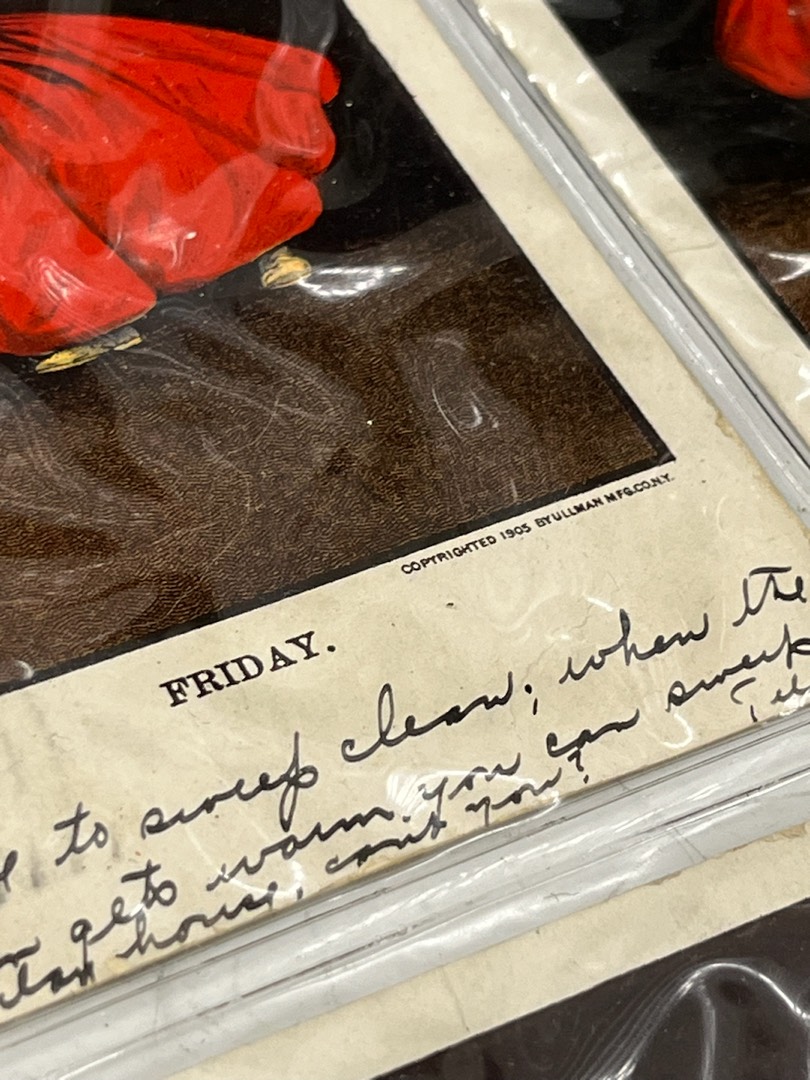 COPYRIGHTED 1905 BY ULLMAN MFG. CO. N.Y.
FRIDAY.
to sweep clean, when the
gets warm you can sweep
house, cant you?